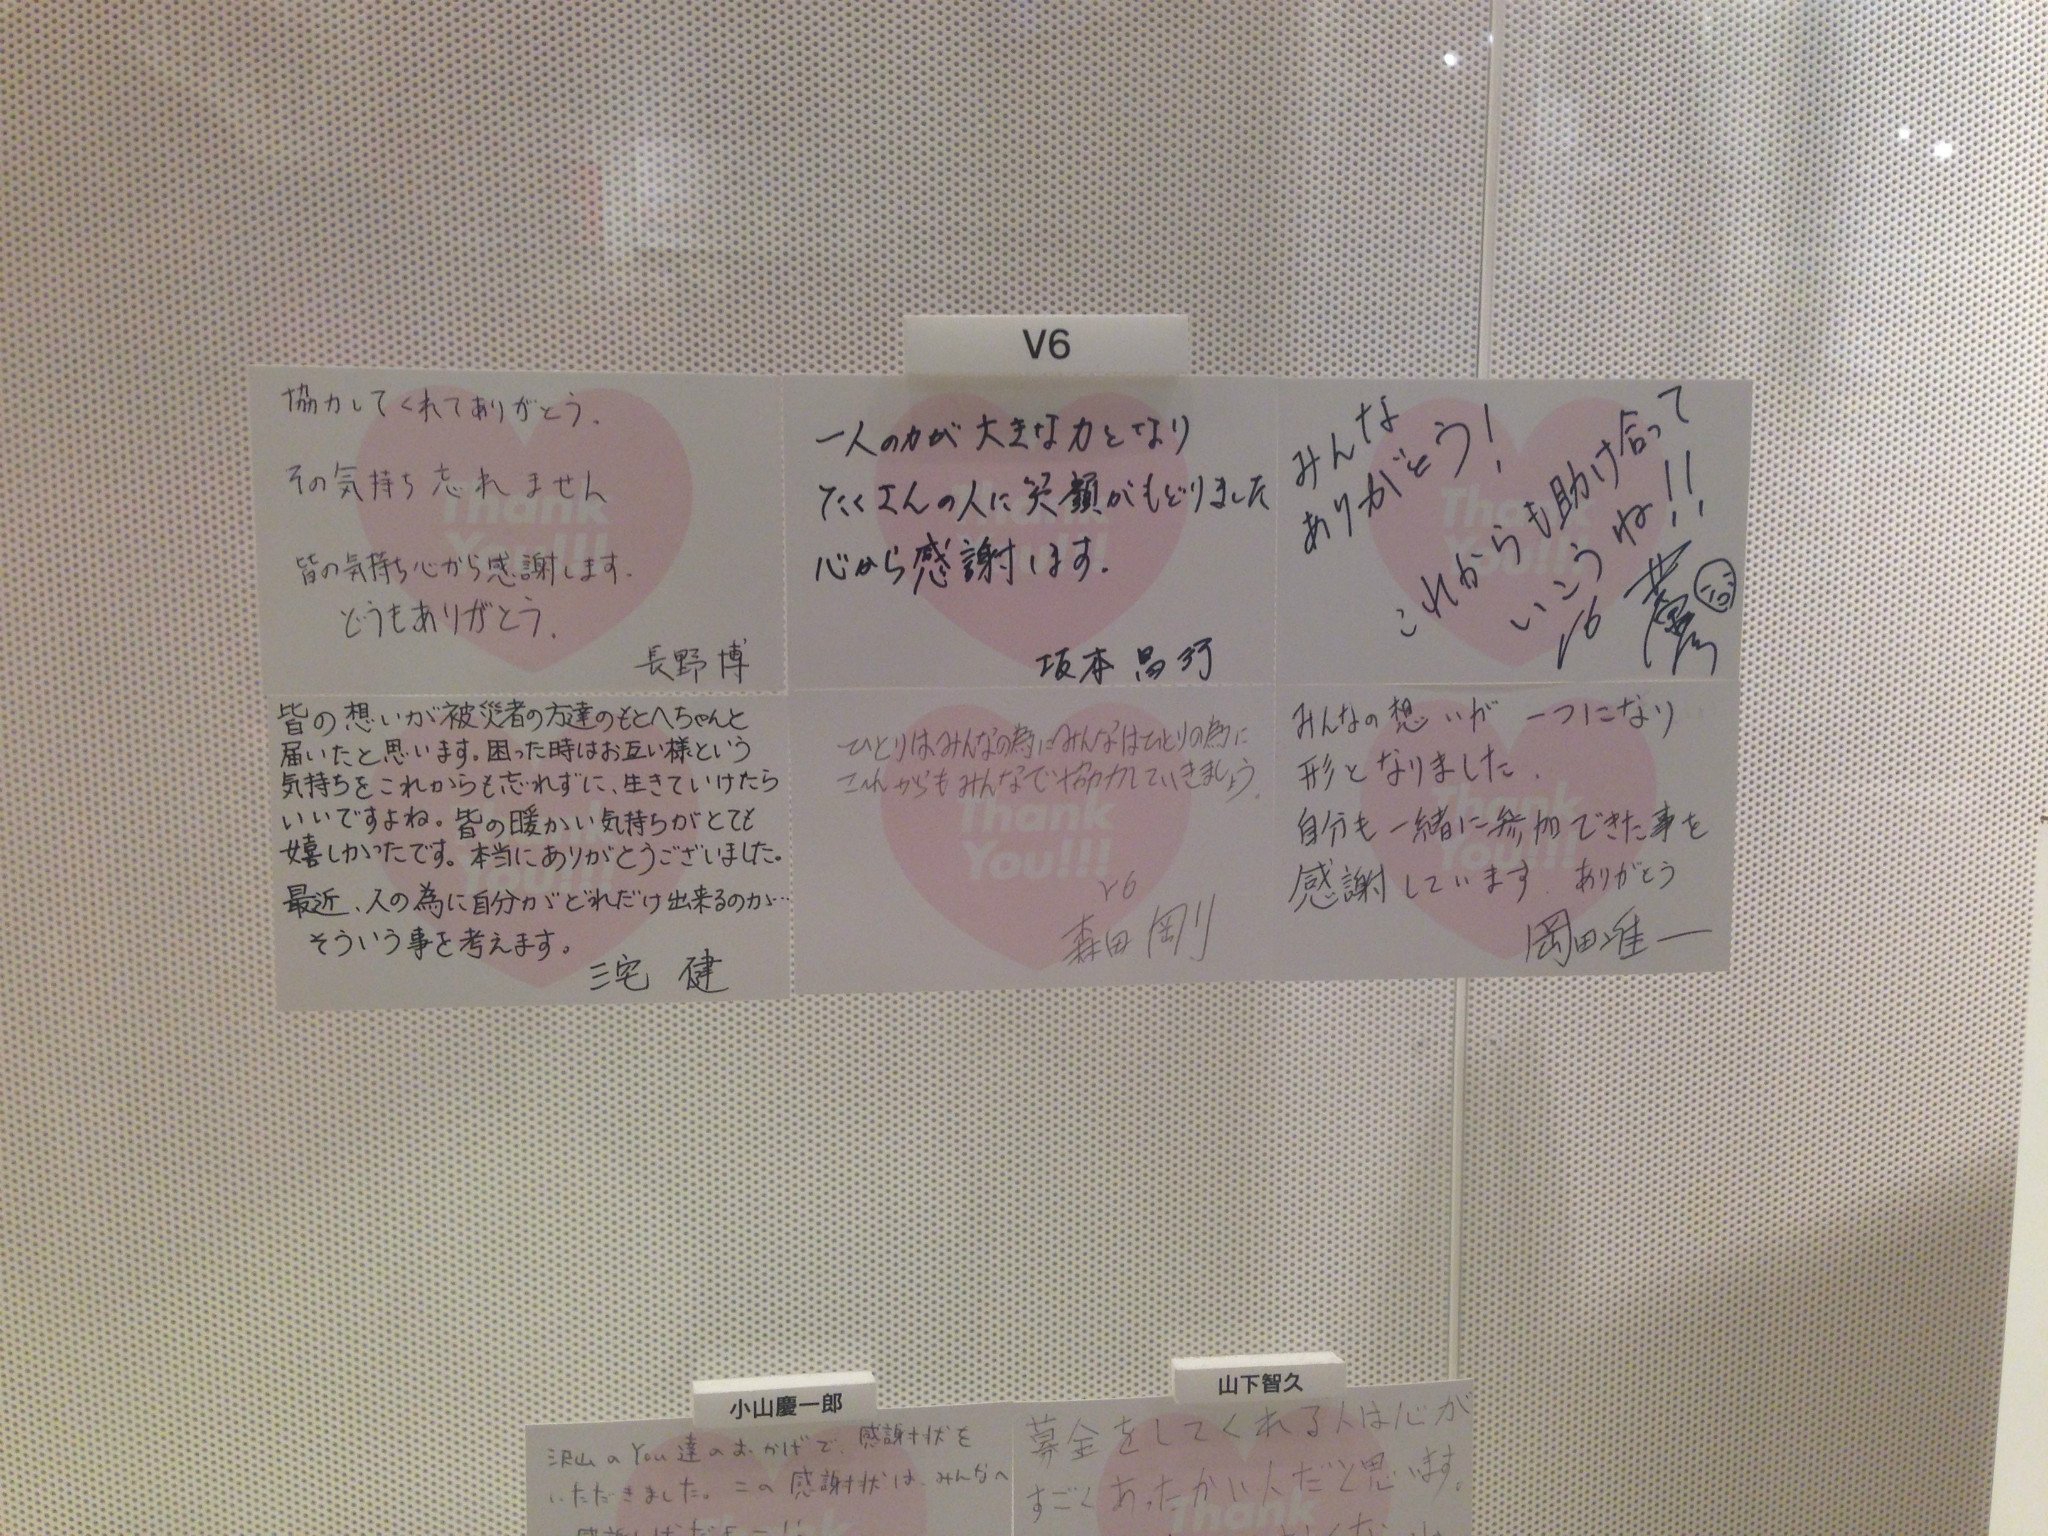 V6
協力してくれてありがとう.
その気持ち忘れません
皆の気持ち心から感謝します.
どうもありがとう.
長野 博
一人の力が大きな力となり
たくさんの人に笑顔がもどりました
心から感謝します.
坂本 昌行
みんな
ありがとう!
これからも助け合って
いこうね!!
V6
皆の想いが被災者の方達のもとへちゃんと
届いたと思います。困った時はお互い様という
気持ちをこれからも忘れずに、生きていけたら
いいですよね。皆の暖かい気持ちがとても
嬉しかったです。本当にありがとうございました。
最近、人の為に自分がどれだけ出来るのか…
そういう事を考えます。
三宅 健
ひとりはみんなの為にみんなはひとりの為に
これからもみんなで協力していきましょう.
Thank
You!!!
V6
森田 剛
みんなの想いが一つになり
形となりました.
自分も一緒に参加できた事を
感謝しています. ありがとう
岡田准一
小山慶一郎
沢山のYou達のおかげで、感謝状を
いただきました。この感謝状は、みんなへ
山下智久
募金をしてくれる人は心が
すごくあったかい人だと思います。
Thank